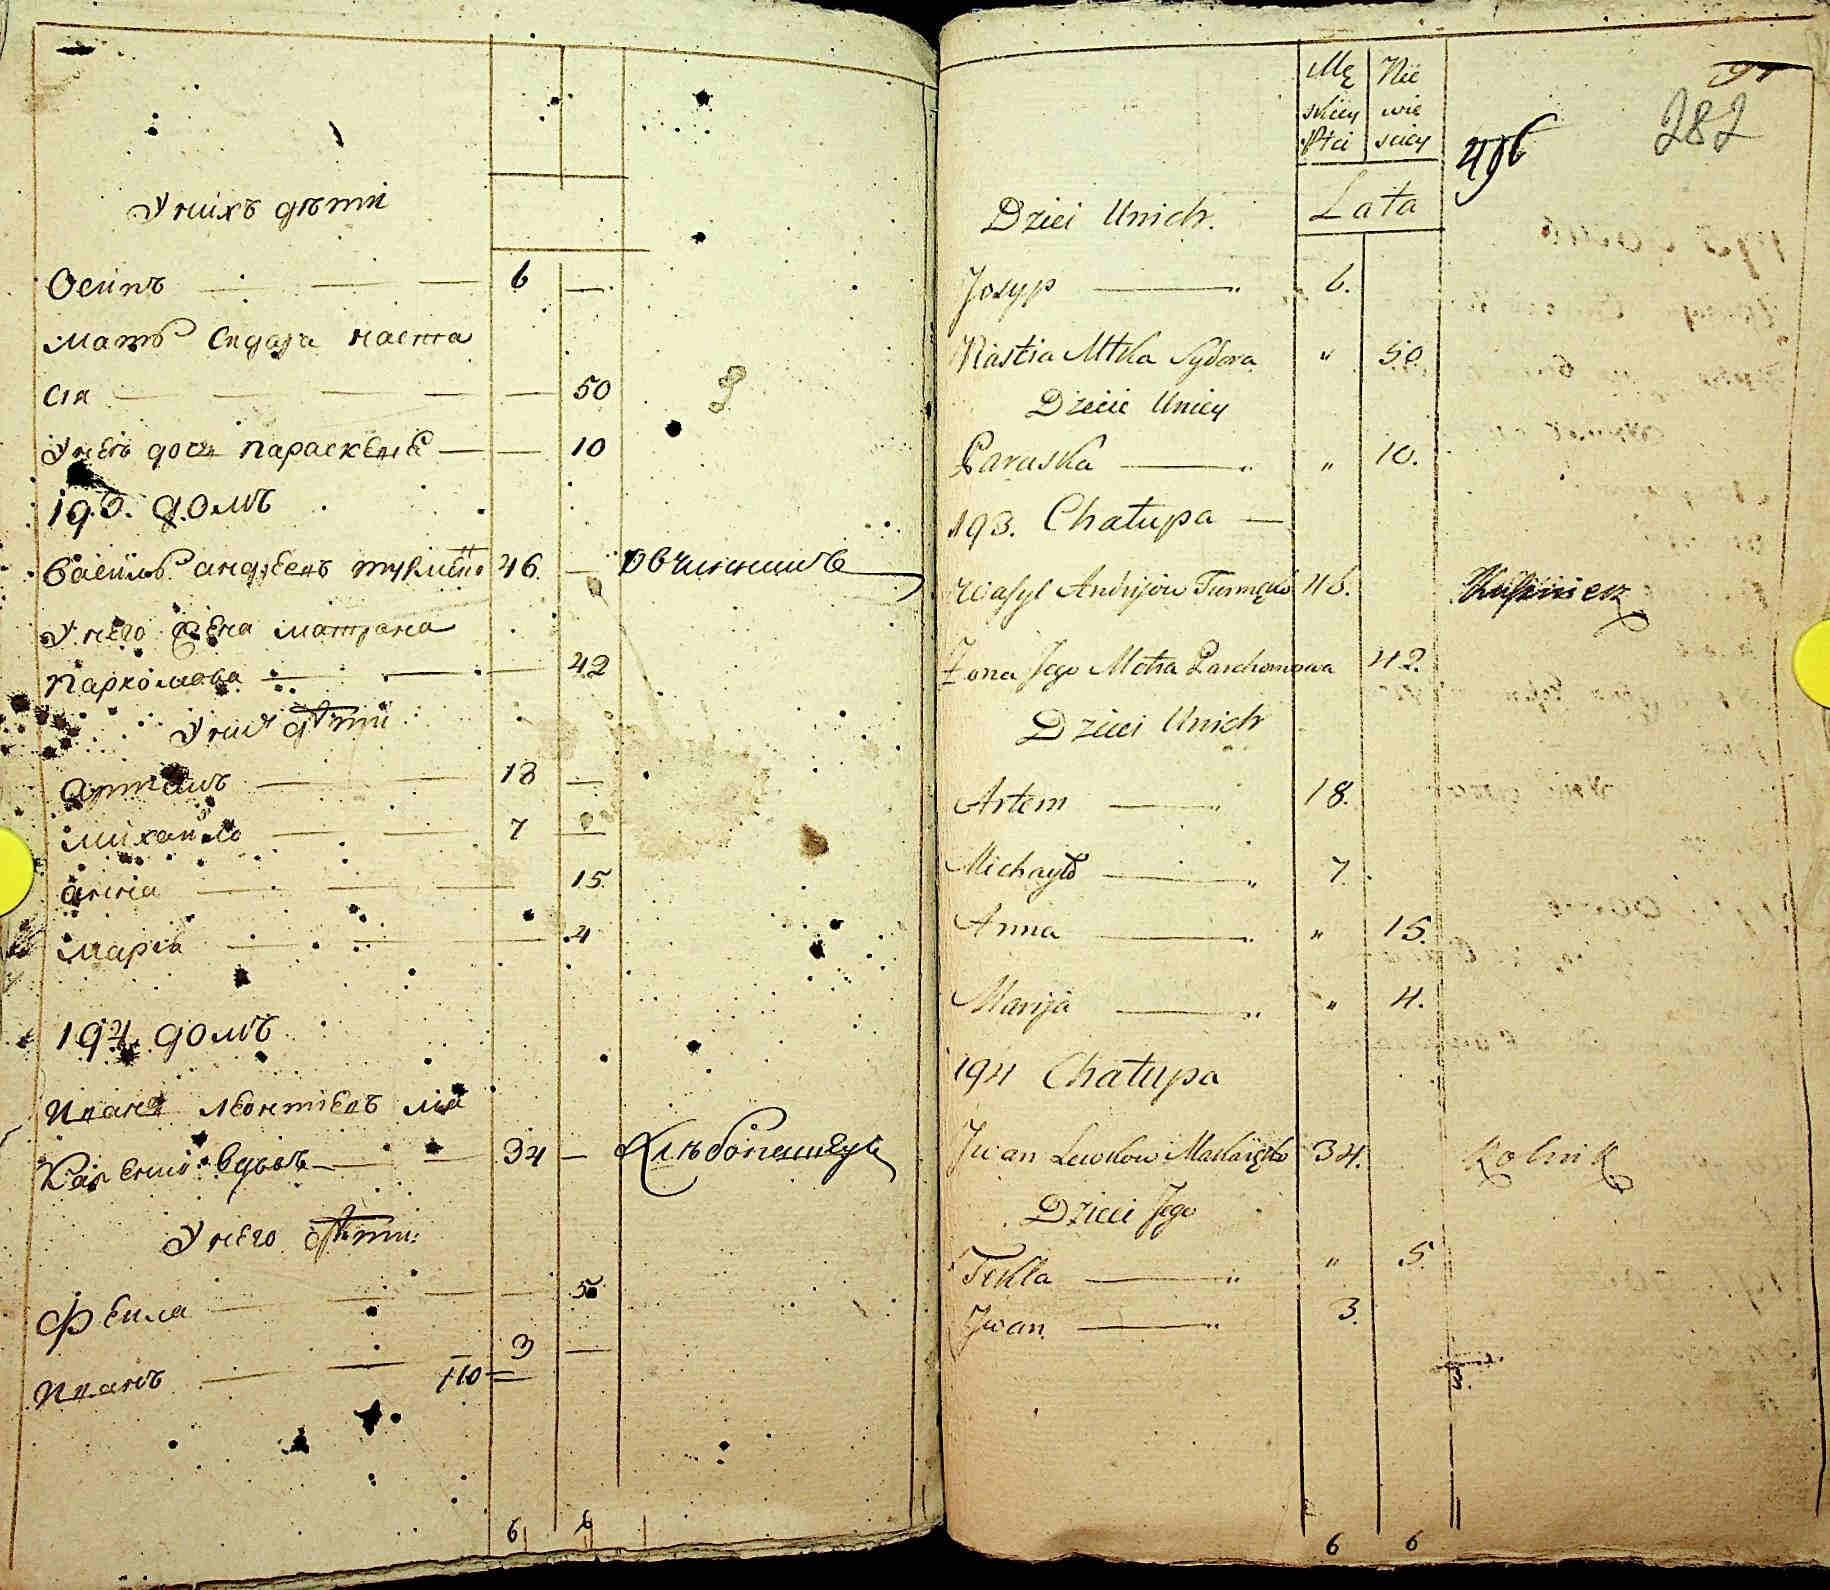 У нихъ дѣти
Осипъ — — — 6 —
мать Сидора наста
сія — — — — — 50
У неѣ дочь параскевіѣ — — 10
193. домъ
Василь андреевъ 46. — овчинникъ
У него жена матрона
Пархомова — — — 42
У них дѣти
артемъ — — 18 —
михайло — — 7 —
анна — — — 15.
маріа — — — 4
194. домъ
Иванъ леонтіевъ ма
каренко вдовъ — — 34 — хлѣбопашецъ
У него дѣти:
Фекла — — — 5
Иванъ — — 3 —
110
6 6
Mę Nie
skiey wie
Płci sciey
496 282
Dzieci Unich. Lata
Josyp — " 6.
Nastia Mtka Sydora " 50.
Dziecie Uniey
Paraska — " " 10.
193. Chałupa —
Wasyl Andrijow 46. Kusznierz
Żona Jego Motra Parchomowa 42.
Dzieci Unich
Artem — " 18.
Michayło — " 7.
Anna — " " 15.
Maryja — " " 4.
194 Chałupa
Jwan Lewkow Makaręko 34. Rolnik
Dzieci Jego
Tekla — " " 5.
Jwan — " 3.
6 6